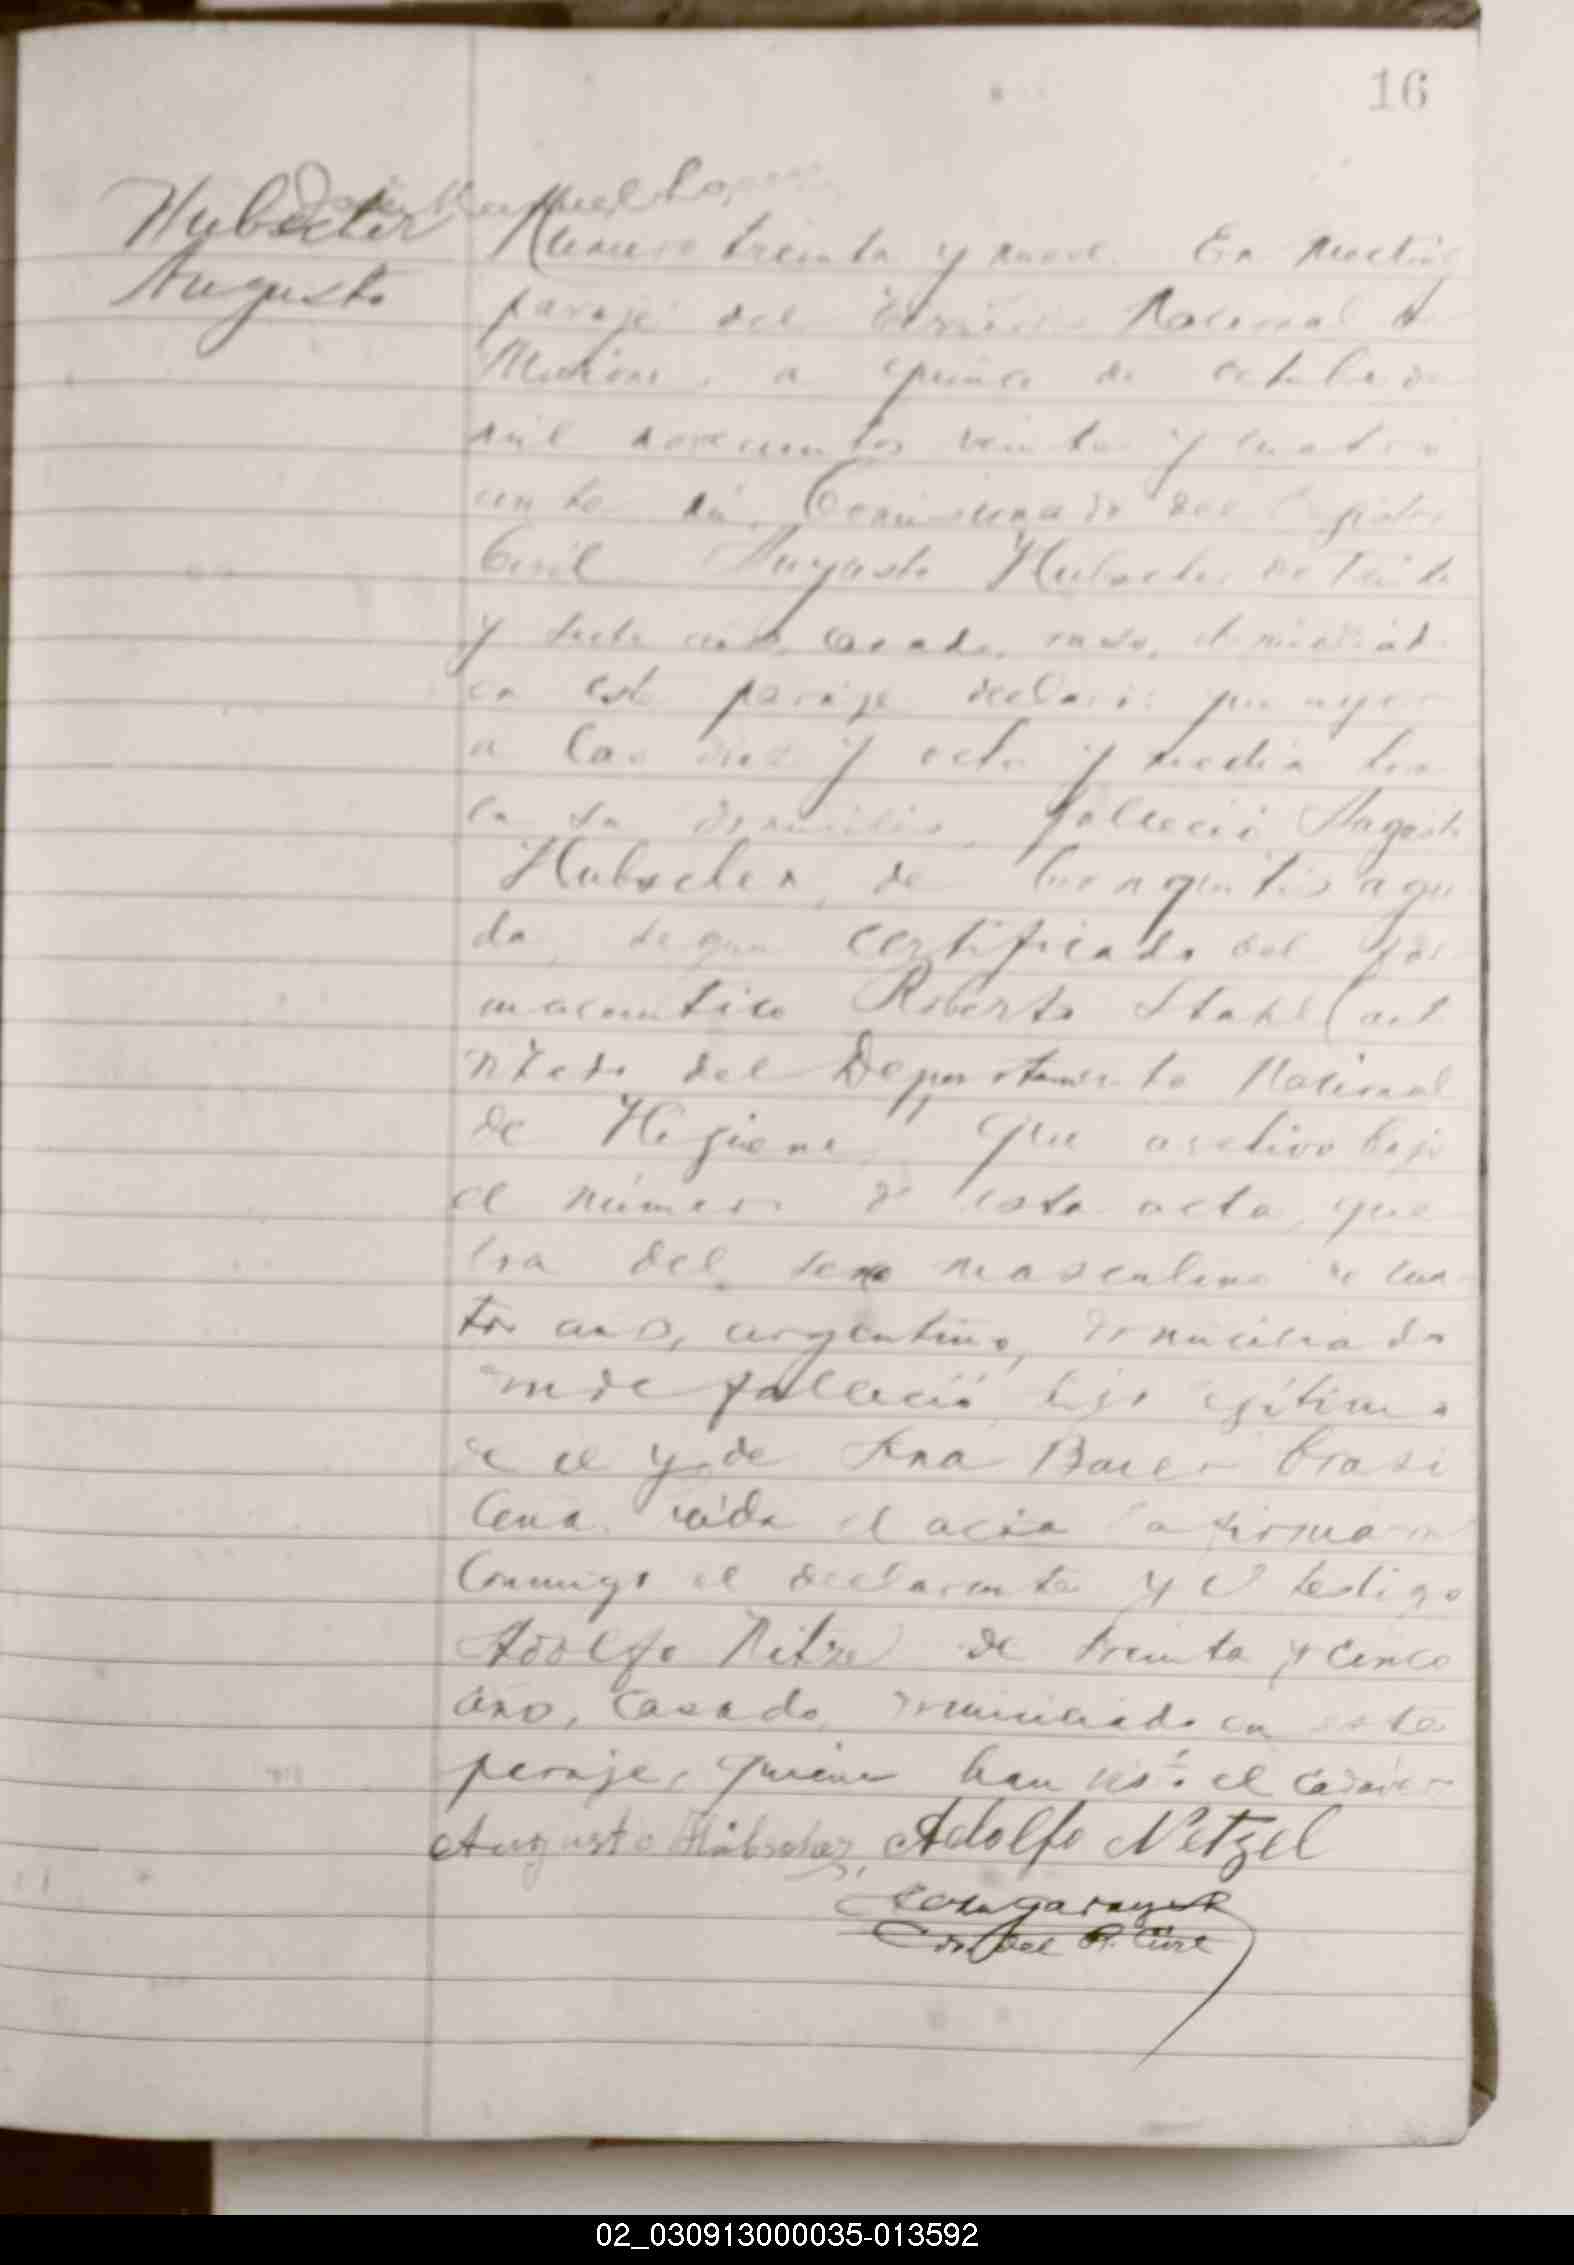 16
Hubscher
Augusto
Numero treinta y nueve. En
paraje del Territorio Nacional de
Misiones, a quince de octubre de
mil novecientos veinte y cuatro
ante mi, Comisionado del Registro
Civil Augusto Hubscher de
y siete años, casado, ruso, domiciliado
en este paraje declaró: que ayer
a las diez y ocho y media horas
en su domicilio, falleció Augusto
Hubscher, de bronquitis agu
da, segun certificado del far
maceutico Roberto Stahl (
del Departamento Nacional
de Higiene, que archivo bajo
el número de esta acta, que
era del sexo masculino de cua
tro años, argentino, domiciliado
donde falleció, hijo legítimo
de el y de Ana Bauer brasi
lena. Leida el acta la firmaron
conmigo el declarante y el testigo
Adolfo Nitzel de treinta y cinco
años, casado, domiciliado en este
paraje, quienes han visto el cadaver
Augusto Hübscher, Adolfo Nitzel
del R. Civil
02_030913000035-013592